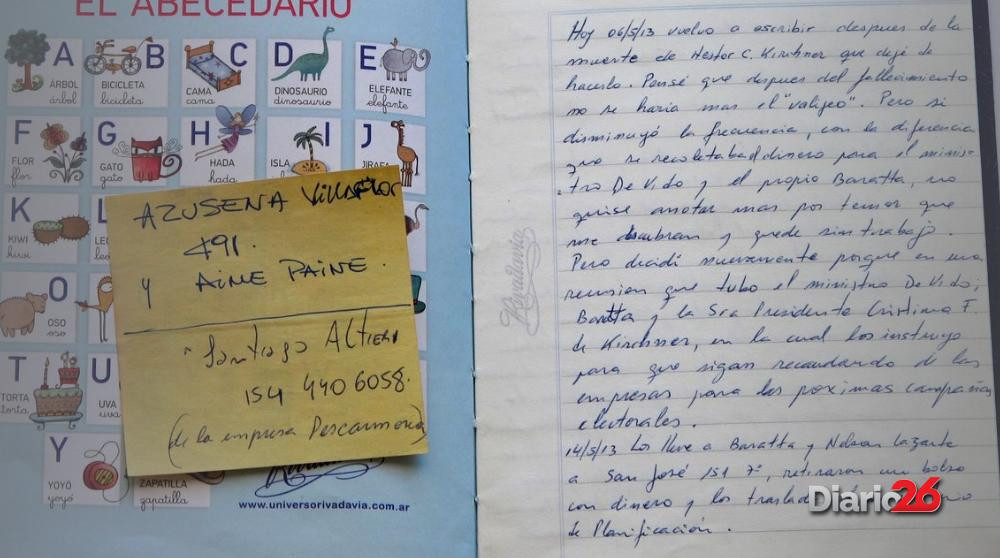 EL ABECEDARIO
A
ÁRBOL
árbol
B
BICICLETA
bicicleta
C
CAMA
cama
D
DINOSAURIO
dinosaurio
E
ELEFANTE
elefante
F
FLOR
flor
G
GATO
gato
H
HADA
hada
I
ISLA
J
JIRAFA
K
KIWI
kiwi
L
O
OSO
oso
T
TORTA
torta
U
UVA
uva
Y
YOYÓ
yoyó
ZAPATILLA
zapatilla
Rivadavia
www.universorivadavia.com.ar
AZUSENA Villaflor
491.
Y AIME PAINE.
Santiago Altieri
154 440 6058.
(de la empresa Pescarmona)
Rivadavia
Hoy 06/5/13 vuelvo a escribir despues de la
muerte de Nestor C. Kirchner que dejé de
hacerlo. Pensé que despues del fallecimiento
no se haria mas el "valijeo". Pero si
disminuyó la frecuencia, con la diferencia
que se recoletaba el dinero para el minis-
tro De Vido y el propio Baratta, no
quise anotar mas por temor que
me descubran y quede sin trabajo.
Pero decidí nuevamente porque en una
reunion que tubo el ministro De Vido;
Baratta y la Sra Presidente Cristina F.
de Kirchner, en la cual los instruyo
para que sigan recaudando de las
empresas para las próximas campañas
electorales.
14/5/13 Los lleve a Baratta y Nelson Lazarte
a San José 151 7º, retiraron un bolso
con dinero y los traslade
de Planificación.
Diario26